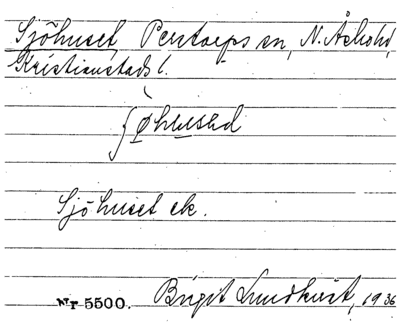 Sjöhuset, Perstorps sn, N. Åsbohd,
Kristianstads l.
Sjöhuset ek.
Nr 5500. Birgit Lundkvist, 1936